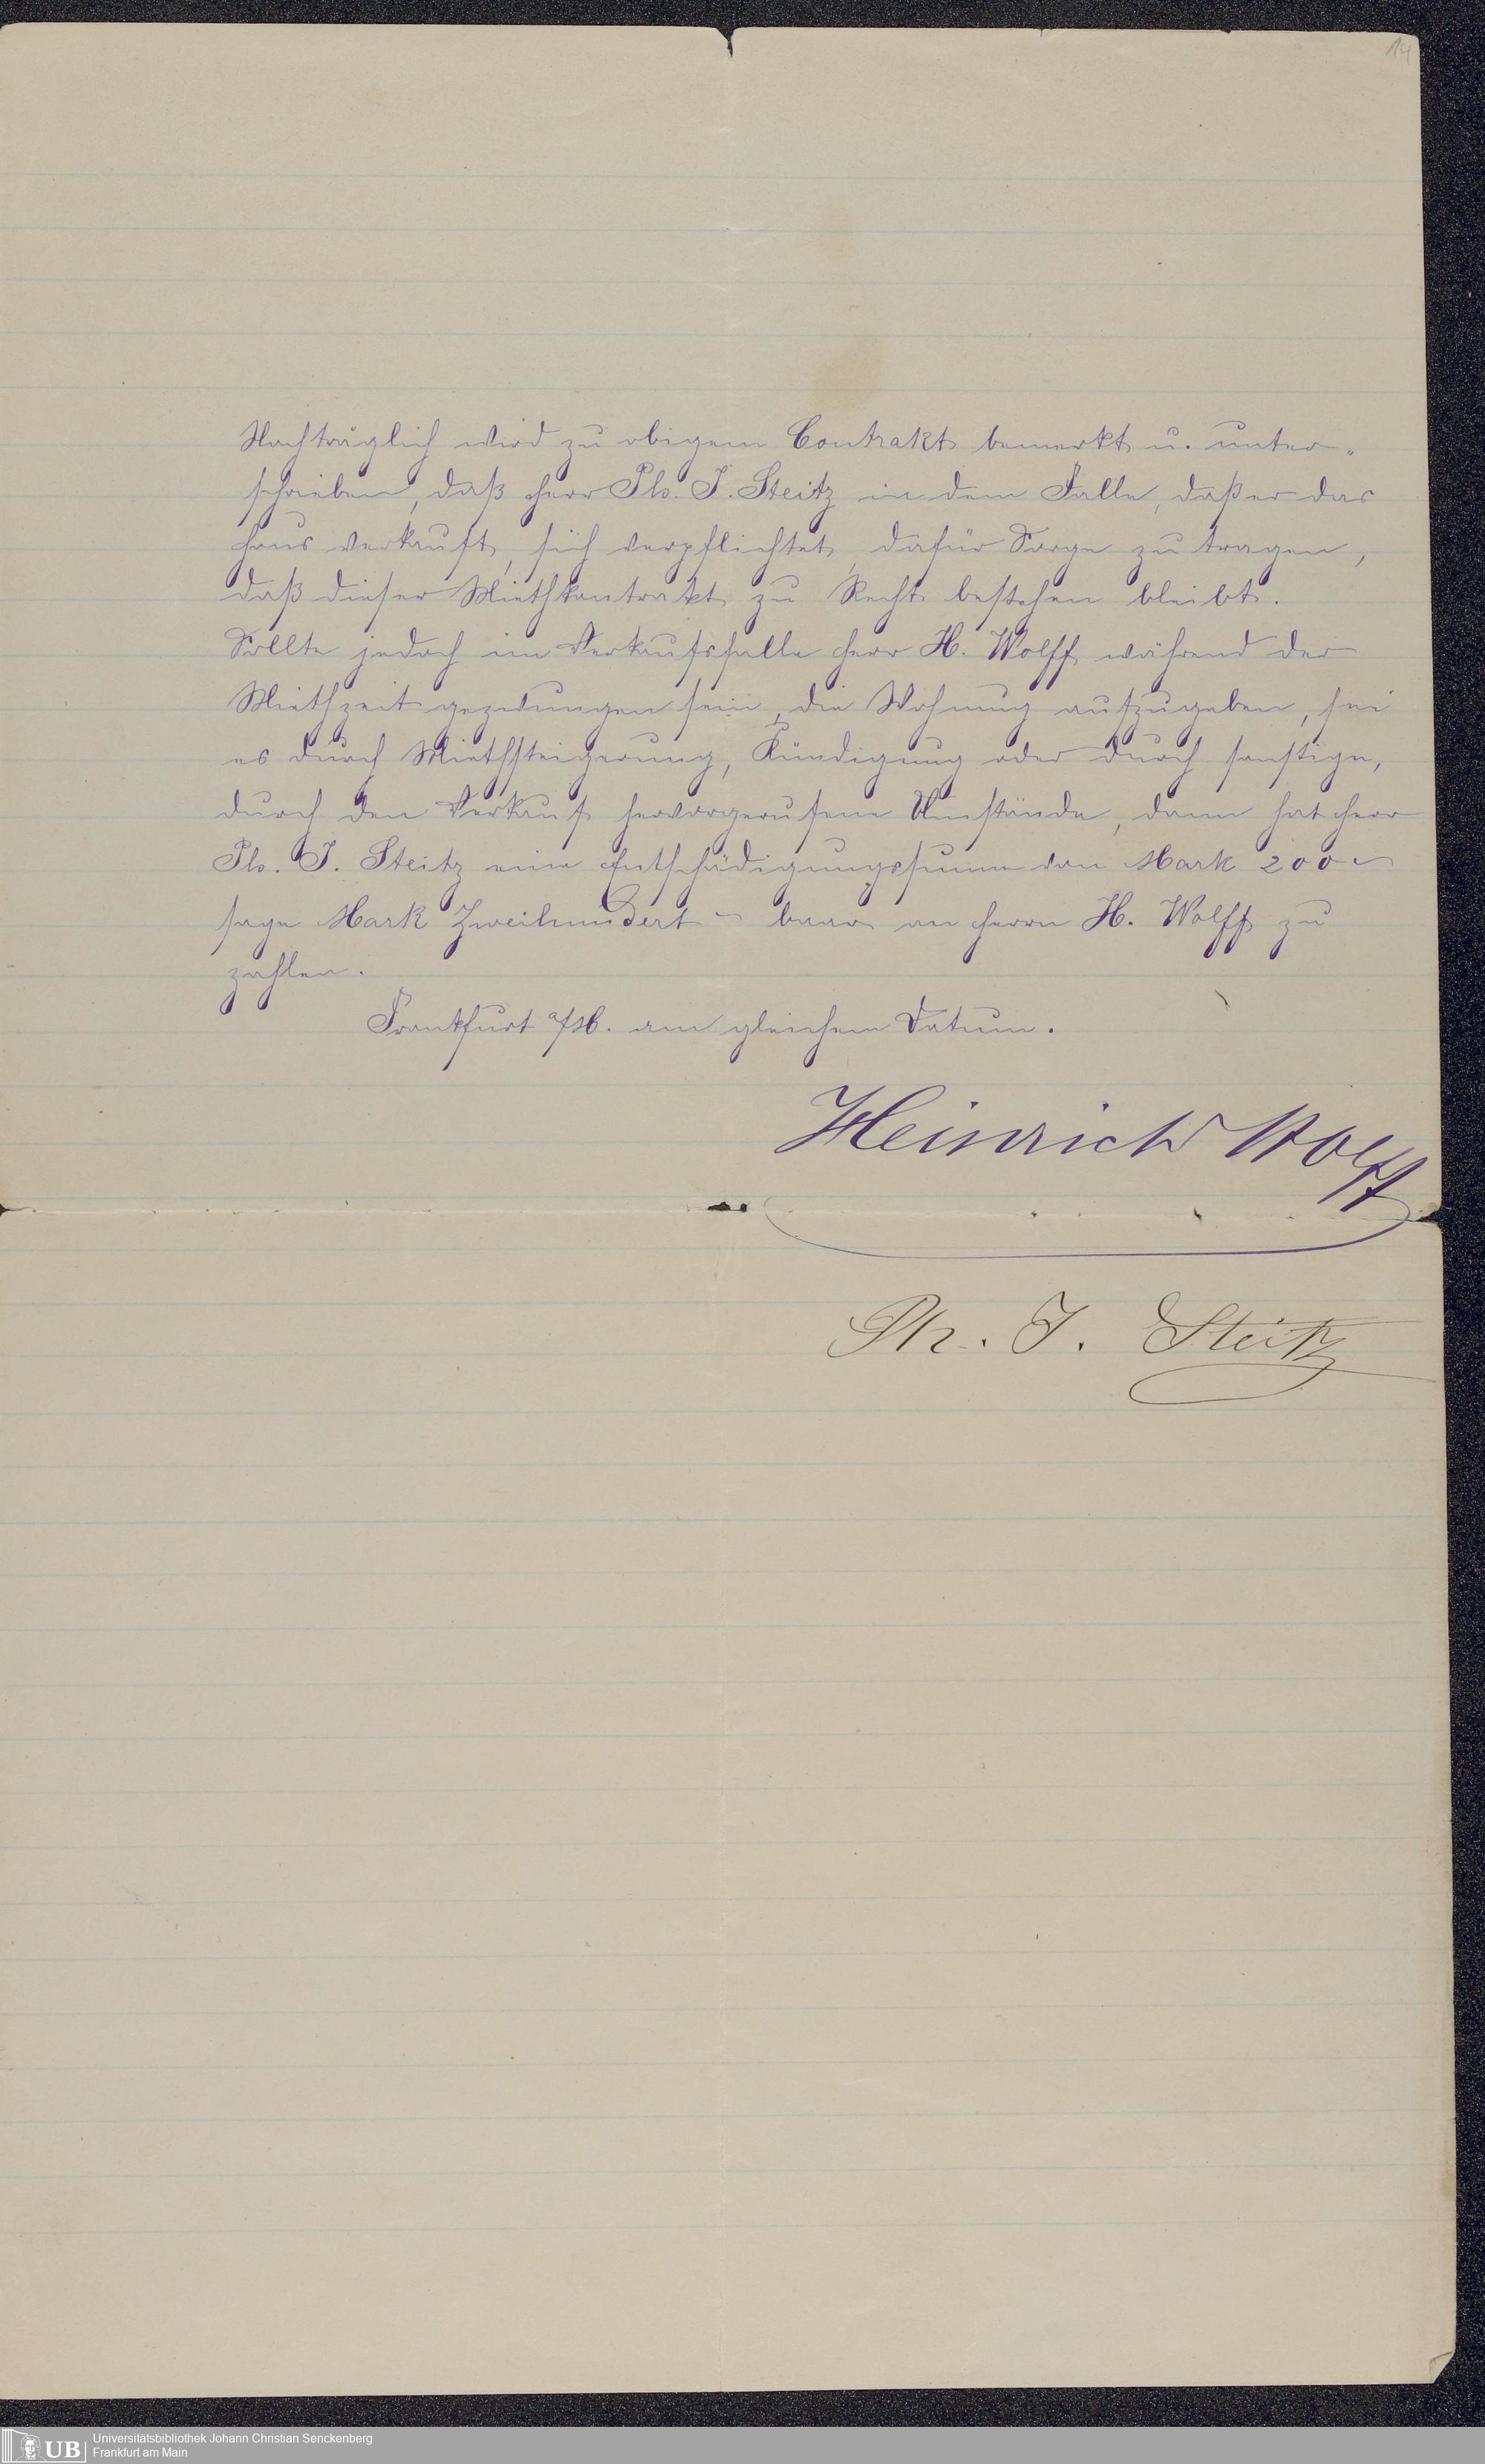 14
Nachträglich wird zu obigem Contrakt bemerkt u. unter-
schrieben, daß Herr Ph. J. Steitz in dem Falle, daß er das
Haus verkauft, sich verpflichtet, dafür Sorge zu tragen,
daß dieser Miethkontrakt zu Recht bestehen bleibt.
Sollte jedoch im Verkaufsfalle Herr H. Wolff während der
Miethzeit gezwungen sein, die Wohnung aufzugeben, sei
es durch Miethsteigerung, Kündigung oder durch sonstige,
durch den Verkauf hervorgerufene Umstände, dann hat Herr
Ph. J. Steitz eine Entschädigungssumme von Mark 200 –
sage Mark Zweihundert – baar an Herrn H. Wolff zu
zahlen.
Frankfurt a/M. am gleichem Datum.
Heinrich Wolff
Ph. J. Steitz
UB
Universitätsbibliothek Johann Christian Senckenberg
Frankfurt am Main